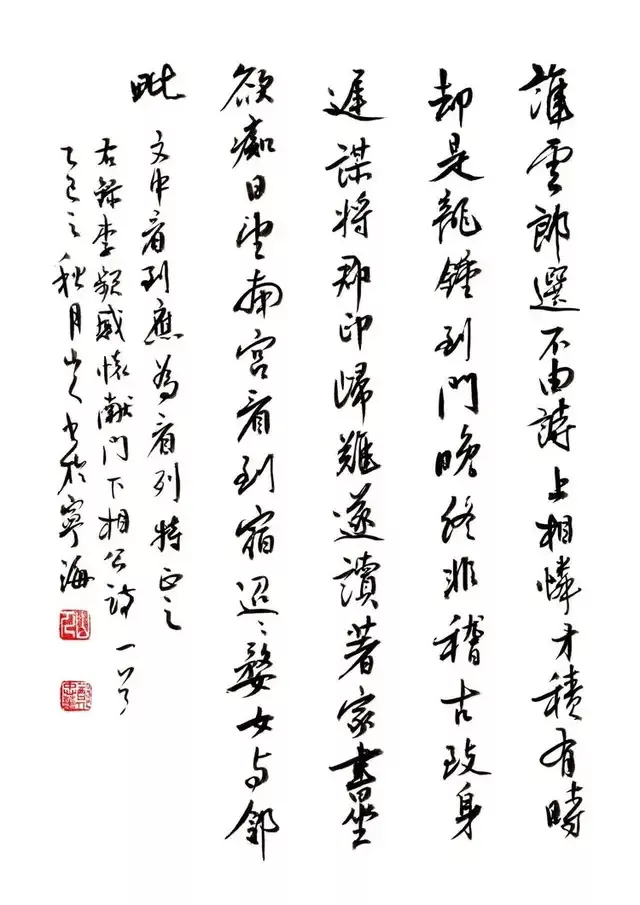 誰雲郎選不由詩上相憐才積有時
却是龍鍾到門晚終非稽古致身
遲謀將郡印歸難遂讀著家書坐
欲痴日望南宮看到宿迢〻婺女与鄉
毗
文中看到應為看列特正之
右錄李頻感懷獻門下相公詩一首
乙巳之秋月山人书於寧海